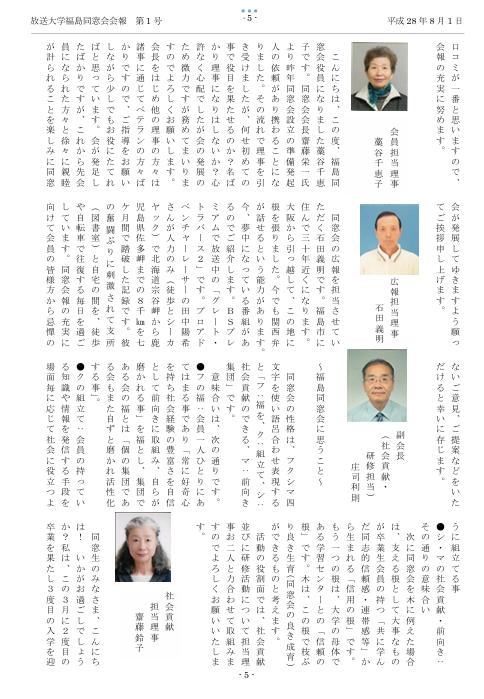 放送大学福島同窓会会報　第１号
- 5 -
平成 28 年 8 月 1 日
口コミが一番と思いますので、
会報の充実に努めます。
会員担当理事
藁谷千恵子
こんにちは、この度、福島同
窓会役員になりました藁谷千恵
子です。同窓会会長齋藤栄一氏
より昨年同窓会設立の準備発起
人の依頼があり携わることにな
りました。その流れで理事を引
き受けましたが、何せ初めての
事で役目を果たせるのか？名ば
かり理事になりはしないか？心
許なく心配でしたが会の発展の
ため微力ですが務めさせていま
すのでよろしくお願いします。
会長をはじめ他の理事の方々は
諸事に通じてベテランの方々ば
かりですので、ご指導をお願い
しながら少しでもお役にたてれ
ばと思っています。会が発足し
たばかりですが、これから先会
員になられた方々と徐々に親睦
が計られることを楽しみに同窓
会が発展してゆきますよう願っ
てご挨拶申し上げます。
広報担当理事
石田義明
同窓会の広報を担当させてい
ただく石田義明です。福島市に
住んで三十年近くになります。
大阪から引っ越して、この地に
根を張りました。今でも関西弁
が話せるという能力があります。
今、夢中になっている番組があ
るのでご紹介します。ＢＳプレ
ミアムで放送中の「グレート・
トラバース２」です。プロアド
ベンチャーレーサーの田中陽希
さんが人力のみ（徒歩とシーカ
ヤック）で北海道宗谷岬から鹿
児島県佐多岬までの８千㎞を七
ケ月間で踏破した記録です。彼
の奮闘ぶりに刺激されて支所
（図書室）と自宅の間を、徒歩
や自転車で往復する毎日を過ご
しています。同窓会報の充実に
向けて会員の皆様方から忌憚の
ないご意見、ご提案などをいた
だけると幸いに存じます。
副会長
（社会貢献・
研修担当）
庄司利則
～福島同窓会に思うこと～
同窓会の性格は、フクシマ四
文字を使い語呂合わせ表現する
と「フ‥福を、ク‥組立て、シ‥
社会貢献のできる、マ‥前向き
集団」です。
意味合いは、次の通りです。
●フの福‥会員一人ひとりにあ
てはまる事であり「常に好奇心
を持ち社会経験の豊富さを自信
として前向きに取組み、自らが
磨かれる事」を福とし、集団で
ある会の福とは「個の集団であ
る会もまた自ずと磨かれ活性化
する事」。
●クの組立て‥会員の持ってい
る知識や情報を発信する手段を
場面毎に応じて社会に役立つよ
うに組立てる事
●シ・マの社会貢献・前向き‥
その通りの意味合い
次に同窓会を木に例えた場合
は、支える根として大事なもの
が卒業生会員の持つ「共に学ん
だ同志的信頼感・連帯感等」か
ら生まれる「信用の根」です。
もう一つの根は、大学の母体で
ある学習センターとの「信頼の
根」です。木は、この根で枝ぶ
り良き生育（同窓会の良き成育）
ができるものと考えます。
活動の役割面では、社会貢献
並びに研修活動について担当理
事お二人と力合わせて取組みま
すのでよろしくお願いいたしま
す。
社会貢献
担当理事
齋藤鈴子
同窓生のみなさま、こんにち
は！　いかがお過ごしでしょう
か？私は、この３月に２度目の
卒業を果たし３度目の入学を迎
- 5 -